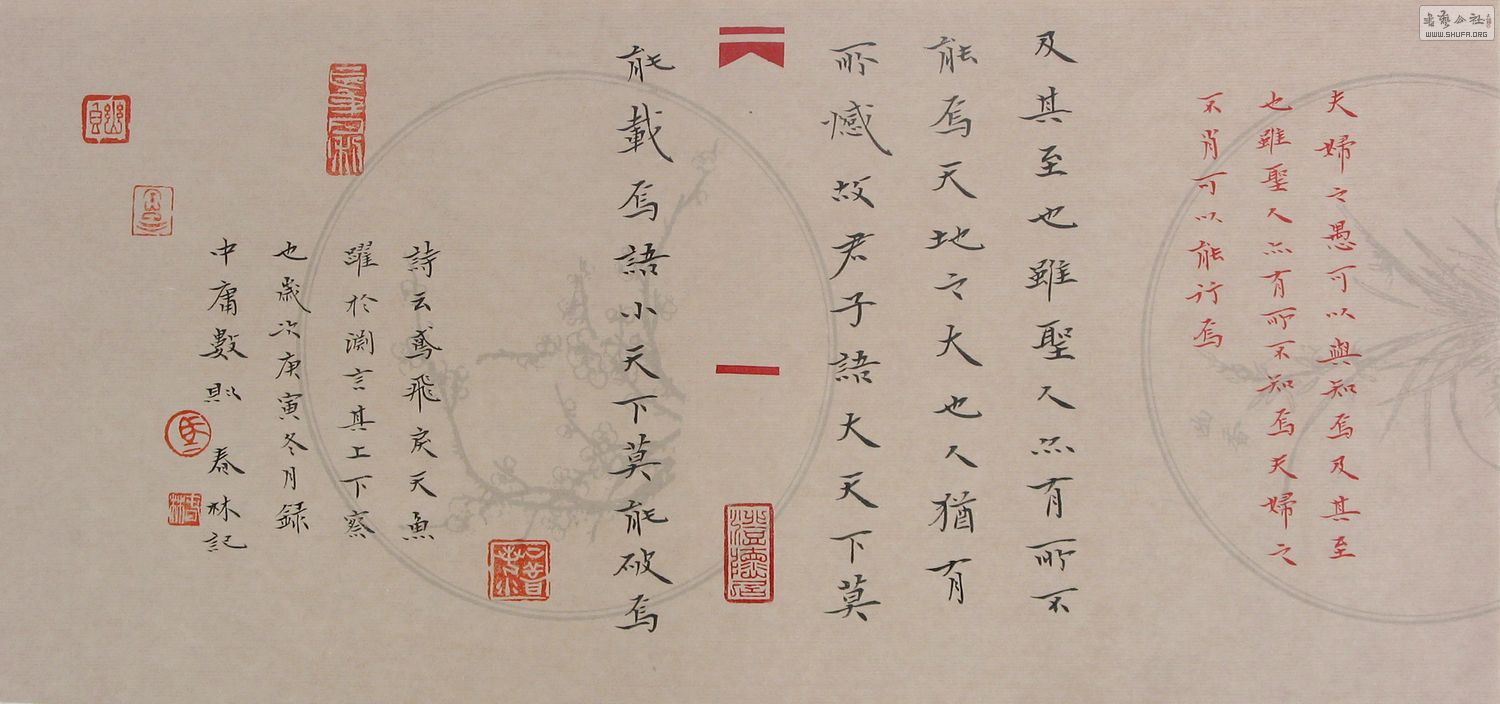 夫婦之愚可以與知焉及其至
也雖聖人亦有所不知焉夫婦之
不肖可以能行焉
及其至也雖聖人亦有所不
能焉天地之大也人猶有
所憾故君子語大天下莫
能載焉語小天下莫能破焉
詩云鳶飛戾天魚
躍於淵言其上下察
也歲次庚寅冬月錄
中庸數則 春林記
澄懷居
書藝公社
WWW.SHUFA.ORG